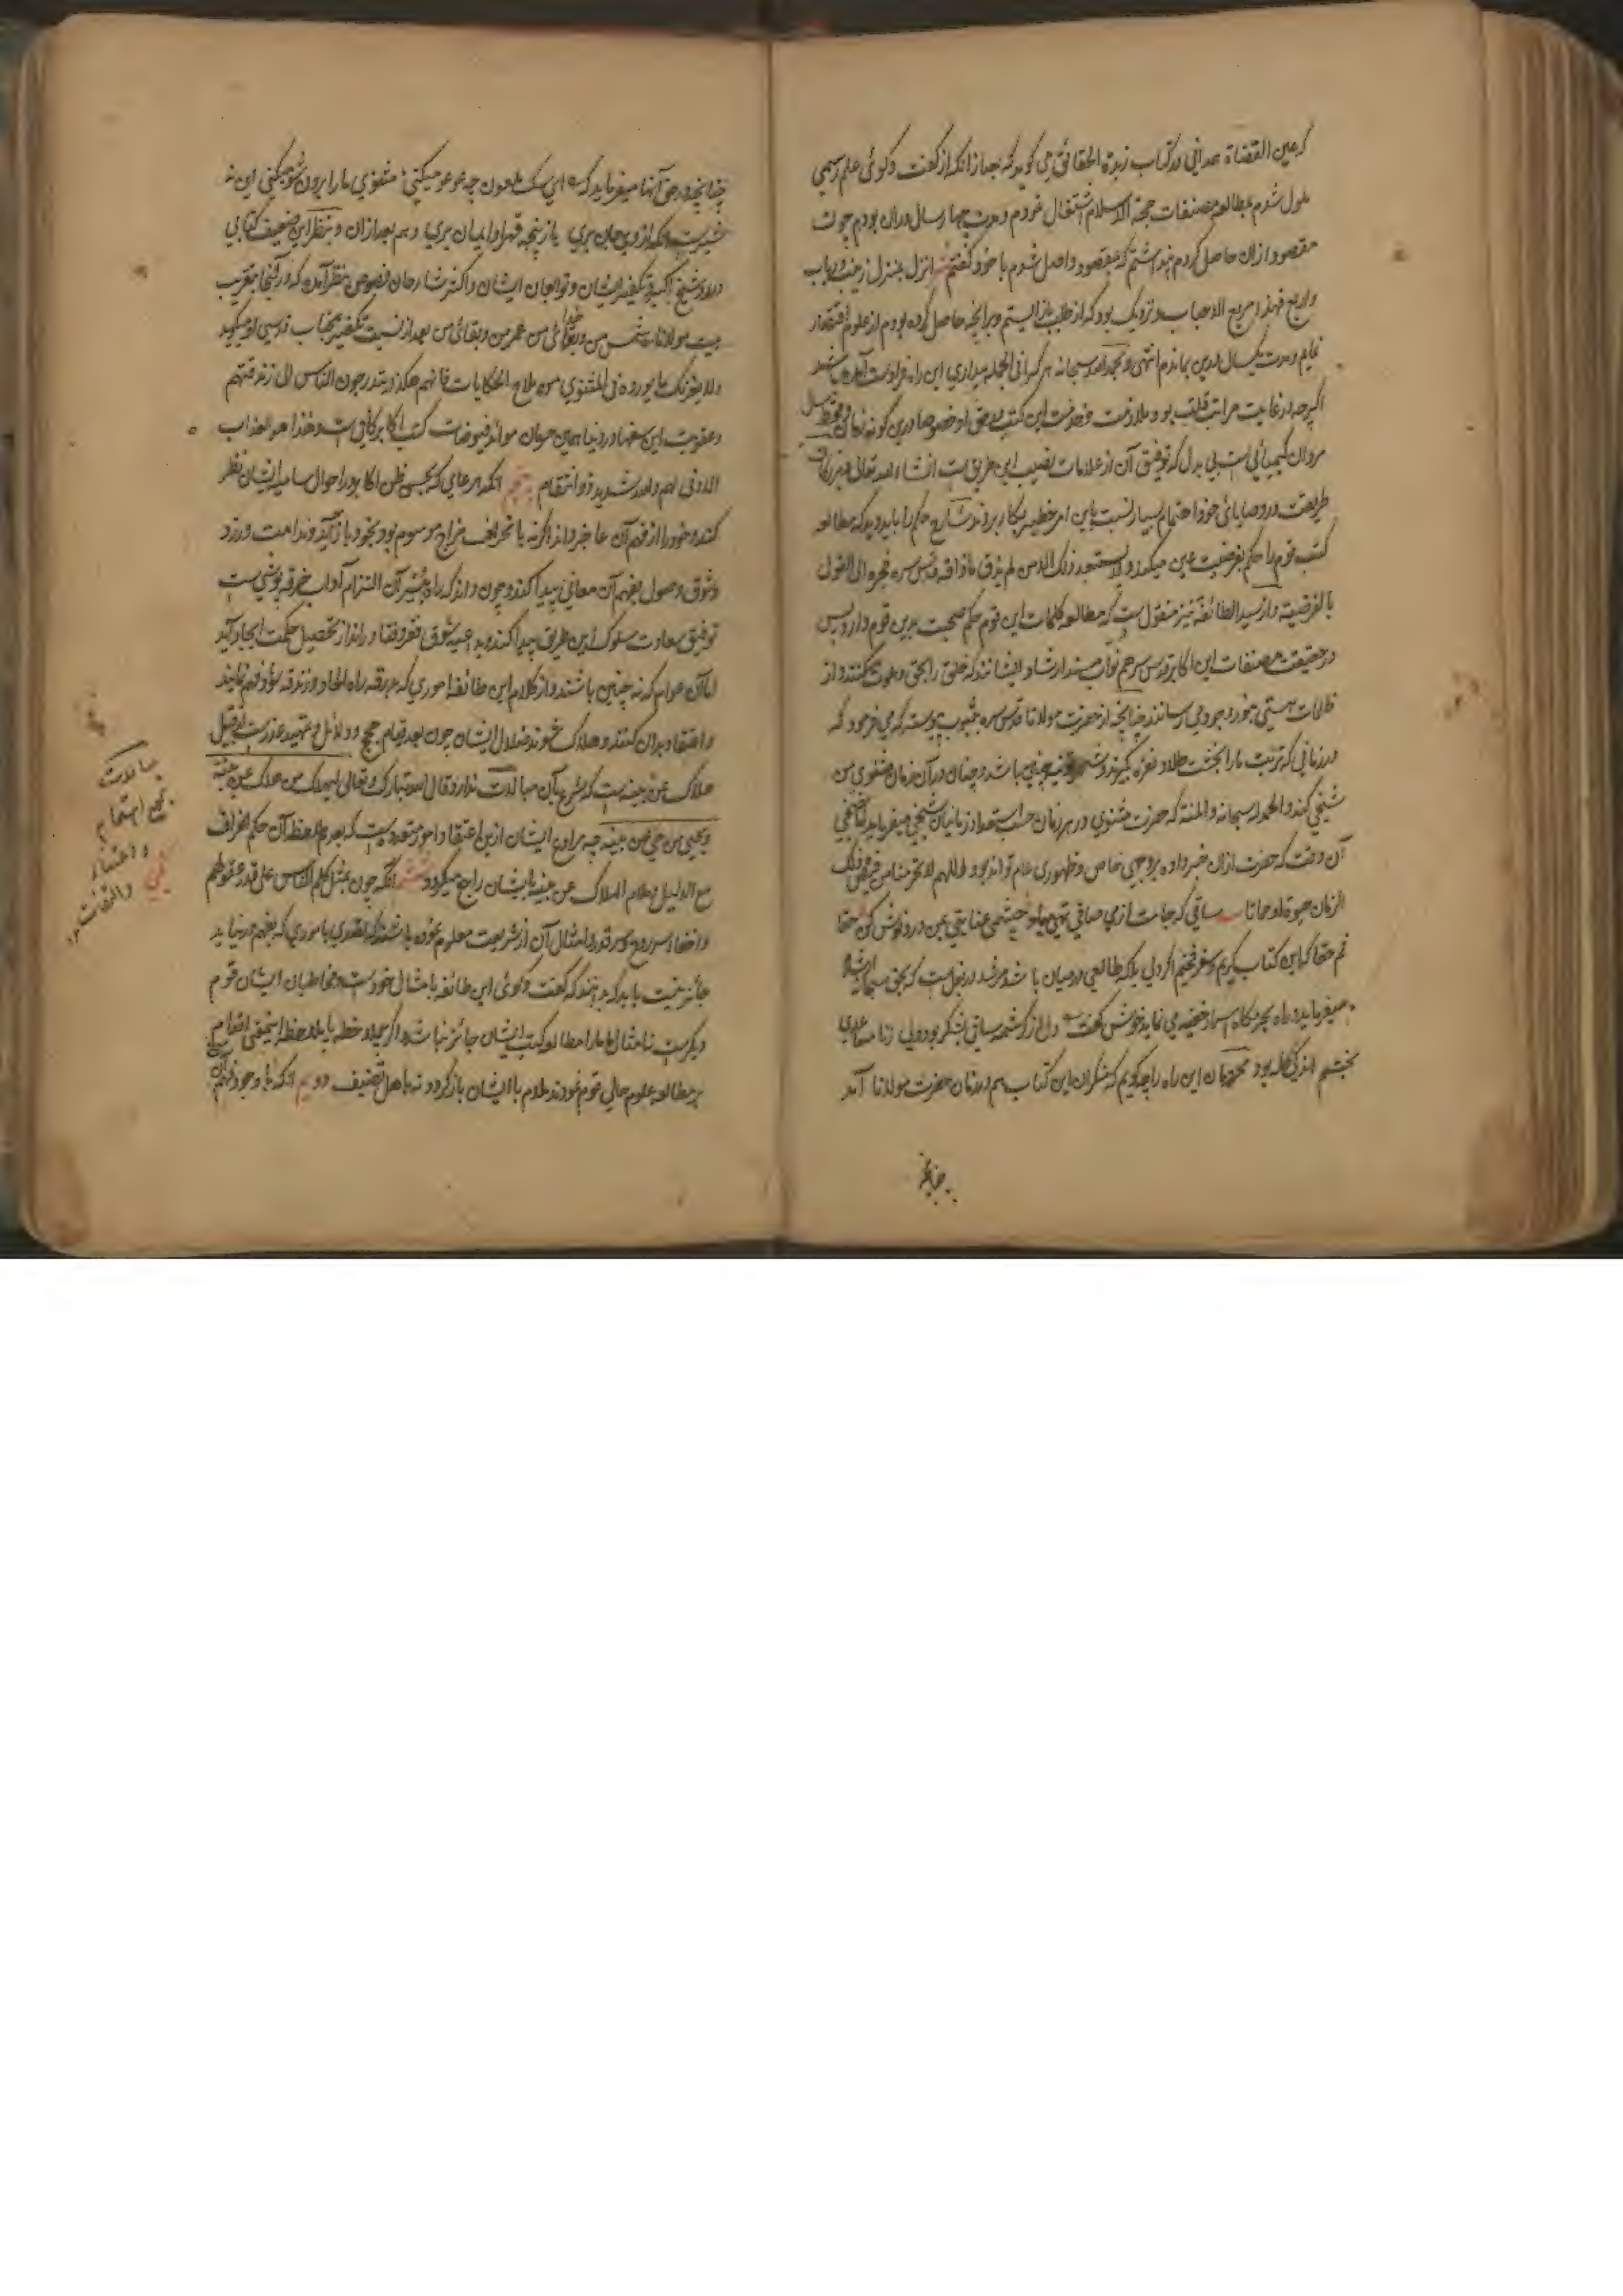 که عین القضاة همدانی در کتاب زبدة الحقائق می گوید که بعد از آنکه از گفت و گوی علم رسمی
ملول شدم بمطالعه مصنفات حجة الاسلام اشتغال نمودم و مدت چهار سال در آن بودم چون
مقصود از آن حاصل کردم پنداشتم که بمقصود واصل شدم با خود گفتم انزل بمنزل زینب و رباب
واربع فهذا مربع الاحباب و نزدیک بود که از طلب باز ایستم و بر آنچه حاصل کرده بودم از علوم اقتصار
نمایم و مدت یکسال درین بماندم انتهی و بحمد الله سبحانه هر که فی الجمله
اگرچه در غایت مراتب قلت بود و ملازمت و خدمت این کتب
مردان کیمیائی است بی بدل که توفیق آن از علامات نصیب این طریق است انشاء الله تعالی
طریقت در وصایای خود اهتمام بسیار نسبت باین امر خطیر بکار بردند شارح حکم را باید دید که مطالعه
کتب قوم را حکم بفرضیت عین میکند و لا یستبعد ذلک الا من لم یذق ما ذاقه قدس سره فجره الی القول
بالفرضیة و از سید الطائفة نیز منقول است که مطالعه کلمات این قوم حکم صحبت بدین قوم دارد پس
در حقیقت مصنفات این اکابر قدس سرهم نواب مسند ارشاد ایشانند که خلق را بحق دعوت میکنند و از
ظلمات هستی بنور وجود می رسانند چنانچه از حضرت مولانا قدس سره بثبوت پیوسته که می فرمود که
در زمانی که تربت ما را بخشت طلا و نقره گیرند و چنان در آن زمان مثنوی من
شیخی کند و الحمد لله سبحانه و المنة که حضرت مثنوی در هر زمان حسب استعداد زمانیان شیخی میفرماید
آن وقت که حضرت از آن خبر داده بر وجهی خاص و ظهوری عام تواند بود اللهم لا تحرمنا من فیض ذلک
الزمان حیوة او مماتا ساقی که جامت از می صافی تهی مباد چشم عنایتی بمن درد نوش کن حقا
ثم حقا که این کتاب کریم و سفر فخیم اگر ولی بلکه طالعی در میان باشد مرشد
میفرماید و راه بحرمگاه اسرار خفیه می نماید خوش گفت دل از کرشمه ساقی بشکر بود ولی ز نامساعدی
بختم اندکی گله بود محرومان این راه را چه گویم که منکران این کتاب هم در زمان حضرت مولانا آمد
چنانچه
چنانچه در حق آنها میفرماید که ای سگ ملعون چه عو عو میکنی مثنوی ما را برون شو میکنی این نه
شیریست کز وی جان بری یا ز پنجه قهر او ایمان بری و هم بعد از آن در نظر این ضعیف کتابی
در رد شیخ اکبر و تکفیر ایشان و توابعان ایشان و اکثر شارحان فصوص بنظر آمد که در آنجا بتقریب
بیت مولانا شمس من و خدای من عمر من و بقای من بعد از نسبت تکفیر بجناب قدسی او میگوید
و لا یغرنک ما یورده فی المثنوی من ملاح الحکایات فانهم هکذا یستدرجون الناس الی زندقتهم
و عقوبت این سفها در دنیا همین حرمان موائد فیوضات کتب اکابر کافی است و هذا هو العذاب
الادنی لهم والله شدید ذو انتقام پنجم آنکه هر عامی که بحسن ظن اکابر در احوال سامیه ایشان نظر
کند و خود را از فهم آن عاجز داند اگر نه بانحراف مزاج موسوم بود بخود باز آید و ندامت ورزد
و شوق وصول بفهم آن معانی پیدا کند و چون داند که راه بسر آن التزام آداب خرقه پوشی است
توفیق سعادت سلوک این طریق پیدا کند و بداعیه شوق فقر و فنا در انداز تحصیل حکمت ایجاد آید
اما آن عوام که نه چنین باشند و از کلام این طائفه اموری که بدرقه راه الحاد و زندقه بود فهم نمایند
و اعتقاد بدان کنند و هلاک شوند ضلال ایشان چون بعد قیام حجج و دلائل و تمهید عذر است از قبیل
هلاک عن بینه است که شرع بآن مبالات ندارد قال الله تبارک و تعالی لیهلک من هلک عن بینة
و یحیی من حی عن بینة چه مرادع ایشان ازین اعتقاد امور متعدده است که بعدم ملاحظه آن حکم انحراف
مع الدلیل و ملام الهلاک عن بینه بایشان راجع میگردد ششم آنکه چون بمثل کلم الناس علی قدر عقولهم
و اخفاء سر روح و سر قدر و امثال آن از شریعت معلوم نموده باشند که تصدی بامری که بفهم در نیاید
جائز نیست باید که بدانند که گفت و گوی این طائفه با امثال خود است و مخاطبان ایشان قوم
دیگرست نا امثال ما را مطالعه کتب ایشان جائز نباشد
بر مطالعه علوم حالی قوم نمودند ملام با ایشان بازگردد نه باهل تصنیف دویم آنکه با وجود فهم آن
مبالات
بمعنی اهتمام
و اعتناء
والتفات